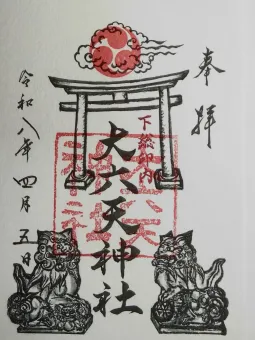 奉拝
下総印内
大六天神社
令和八年四月五日